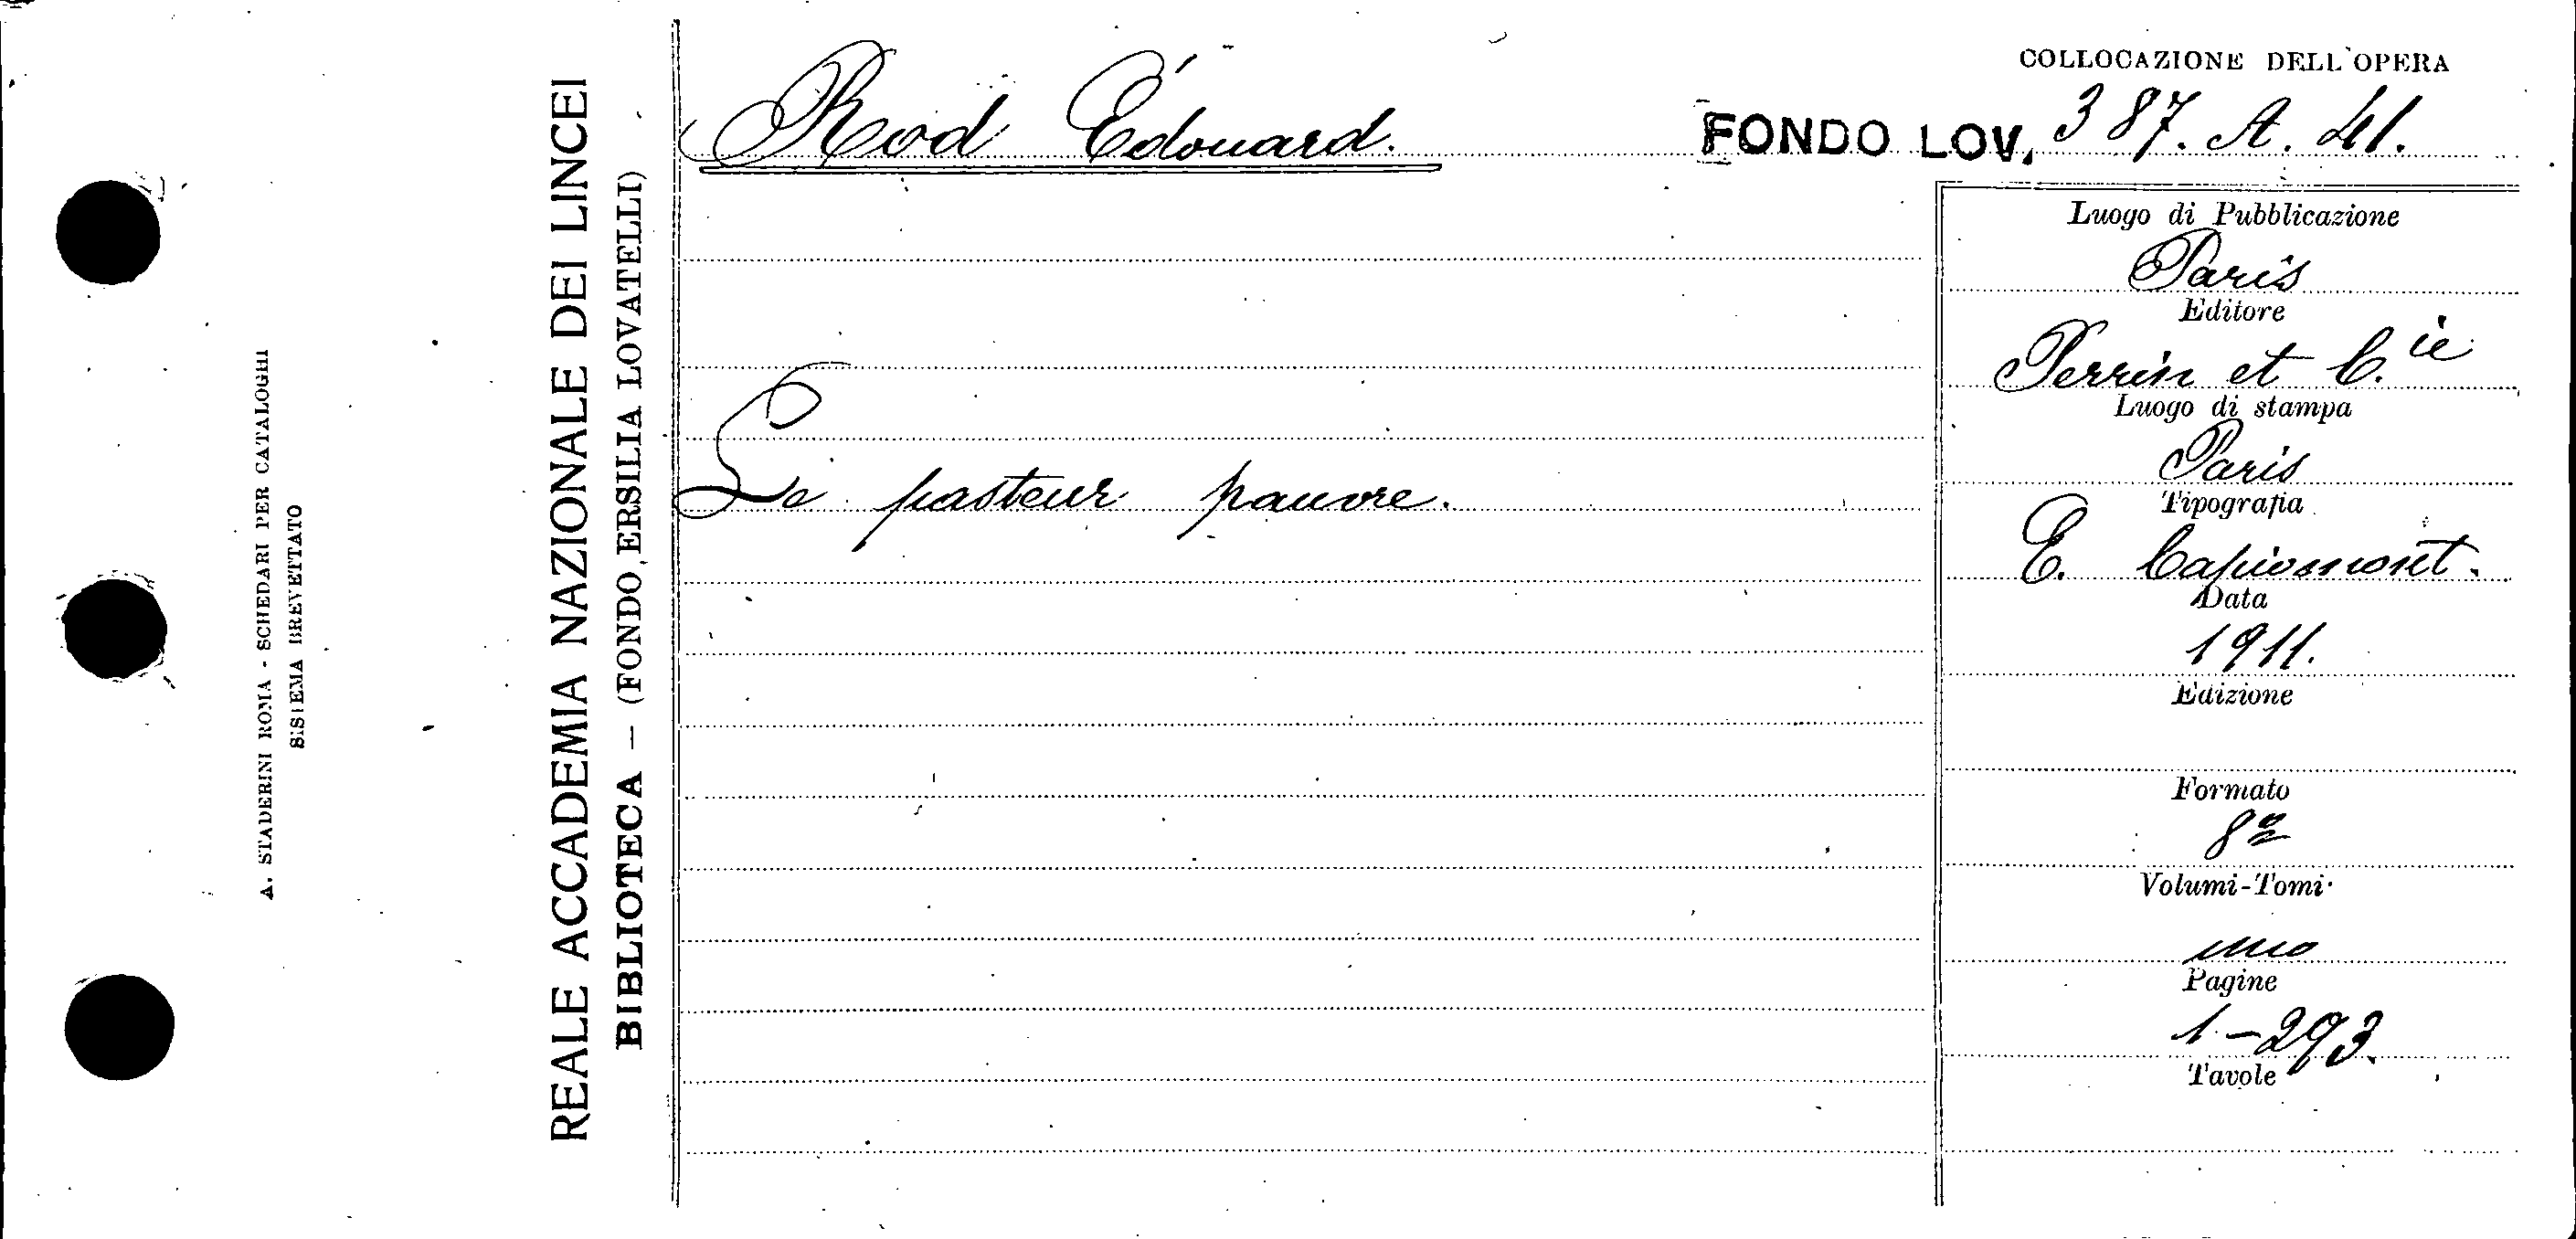 A. STADERINI ROMA - SCHEDARI PER CATALOGHI
SISTEMA BREVETTATO
REALE ACCADEMIA NAZIONALE DEI LINCEI
BIBLIOTECA — (FONDO ERSILIA LOVATELLI)
Rod Édouard.
COLLOCAZIONE DELL'OPERA
FONDO LOV. 387. A. 41.
Le pasteur pauvre.
Luogo di Pubblicazione
Paris
Editore
Perrin et C.ie
Luogo di stampa
Paris
Tipografia
E. Capiomont.
Data
1911.
Edizione
Formato
8º
Volumi-Tomi
uno
Pagine
1-293.
Tavole